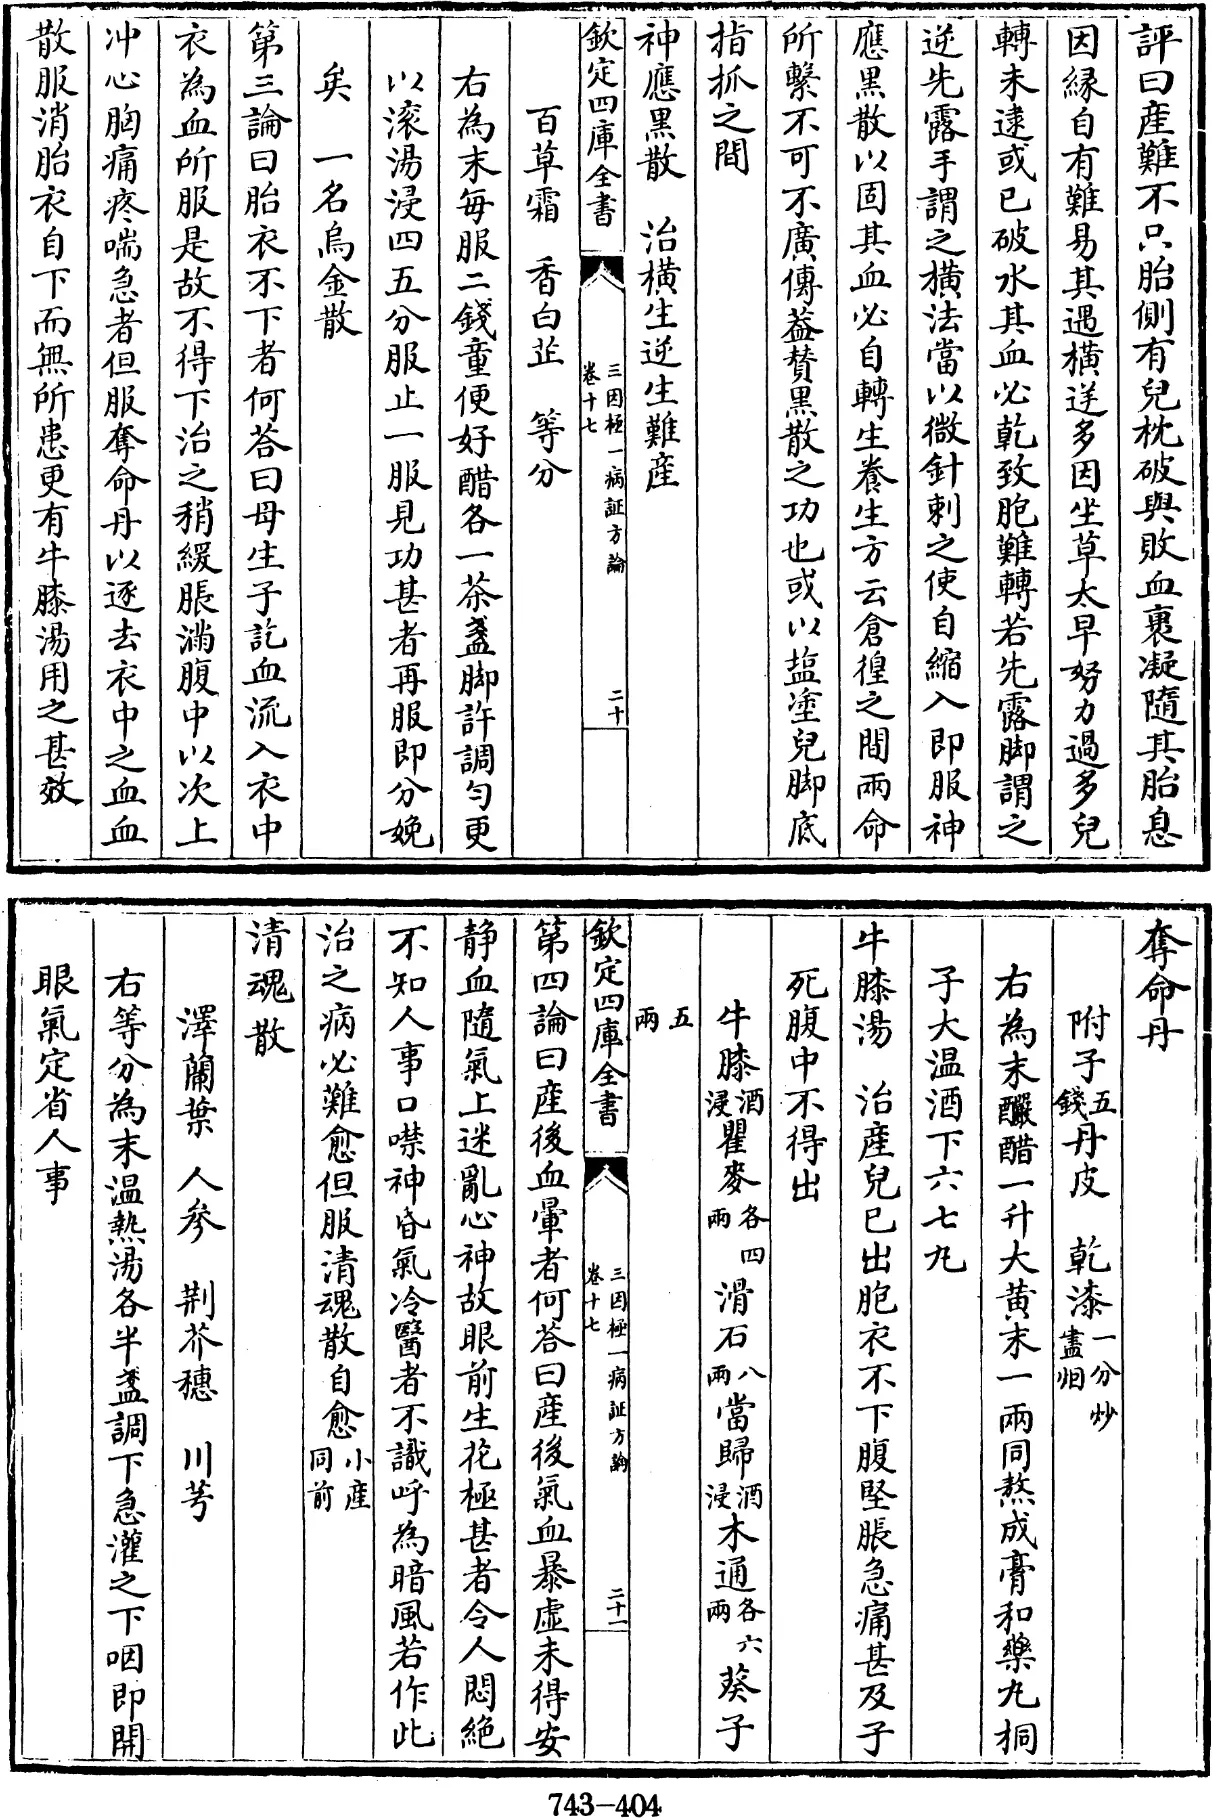 評曰産難不只胎側有兒枕破與敗血裹凝隨其胎息
因緣自有難易其遇橫逆多因坐草太早努力過多兒
轉未逮或已破水其血必乾致胞難轉若先露脚謂之
逆先露手謂之橫法當以微針刺之使自縮入即服神
應黒散以固其血必自轉生養生方云倉徨之間兩命
所繫不可不廣傳葢贊黒散之功也或以塩塗兒脚底
指抓之間
神應黒散　治橫生逆生難産
欽定四庫全書
三因極一病証方論
卷十七
二十
百草霜　香白芷　等分
右為末每服二錢童便好醋各一茶盞脚許調勻更
以滚湯浸四五分服止一服見功甚者再服即分娩
矣　一名烏金散
第三論曰胎衣不下者何荅曰母生子訖血流入衣中
衣為血所服是故不得下治之稍緩脹滿腹中以次上
冲心胸痛疼喘急者但服奪命丹以逐去衣中之血血
散服消胎衣自下而無所患更有牛膝湯用之甚效
奪命丹
附子五錢丹皮　乾漆一分炒盡烟
右為末釅醋一升大黄末一兩同熬成膏和藥丸桐
子大温酒下六七丸
牛膝湯　治產兒已出胞衣不下腹堅脹急痛甚及子
死腹中不得出
牛膝酒浸瞿麥各四兩滑石八兩當歸酒浸木通各六兩葵子
五兩
欽定四庫全書
三因極一病証方論
卷十七
二十一
第四論曰産後血暈者何荅曰産後氣血暴虛未得安
静血隨氣上迷亂心神故眼前生花極甚者令人悶絶
不知人事口噤神昏氣冷醫者不識呼為暗風若作此
治之病必難愈但服清魂散自愈小産同前
清魂散
澤蘭葉　人參　荆芥穗　川芎
右等分為末温熱湯各半盞調下急灌之下咽即開
眼氣定省人事
743-404